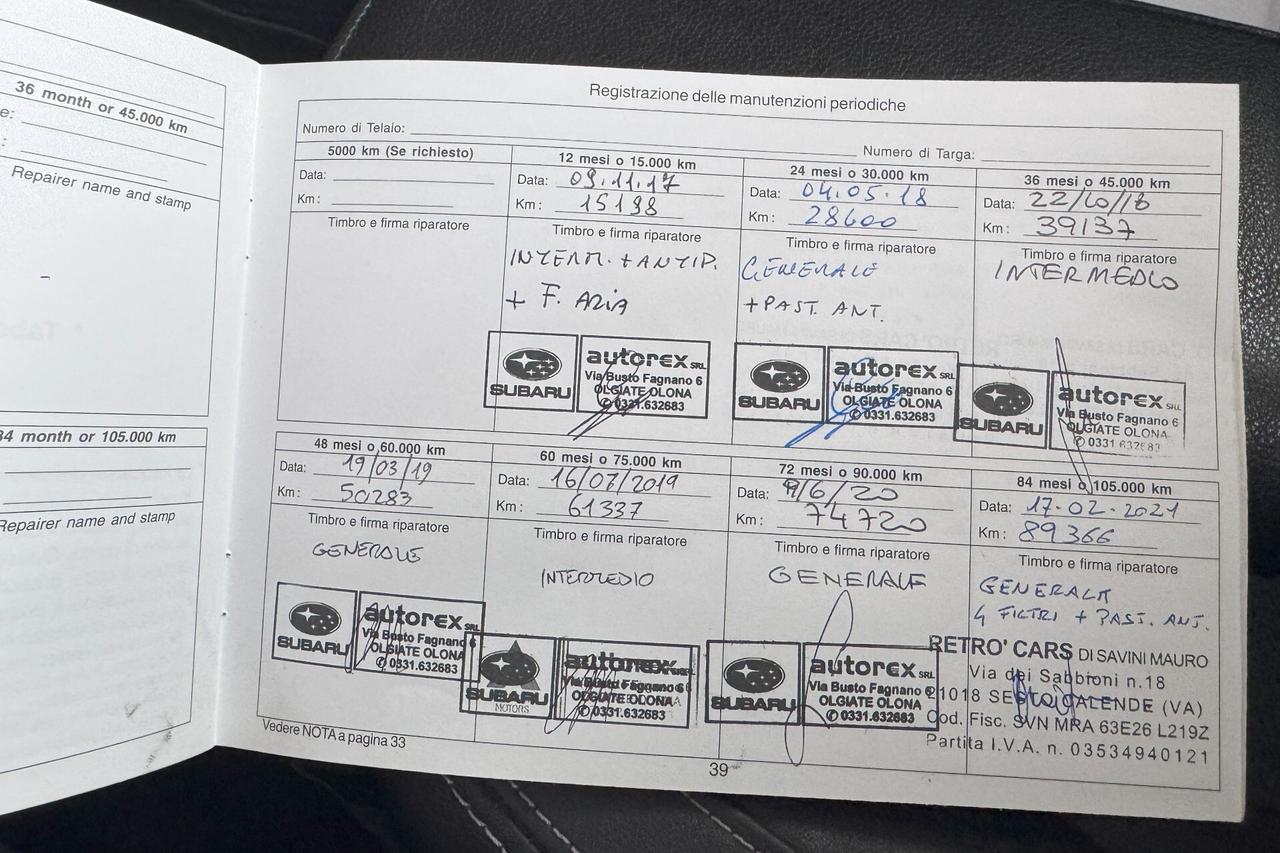 36 month or 45.000 km
e:
:
Repairer name and stamp
84 month or 105.000 km
Repairer name and stamp
Registrazione delle manutenzioni periodiche
Numero di Telaio:
Numero di Targa:
5000 km (Se richiesto)
Data:
Km :
Timbro e firma riparatore
12 mesi o 15.000 km
Data: 09.11.17
Km : 15198
Timbro e firma riparatore
INTERM. + ANTIP.
+ F. ARIA
SUBARU
autorex SRL
Via Busto Fagnano 6
OLGIATE OLONA
✆ 0331.632683
24 mesi o 30.000 km
Data: 04.05.18
Km : 28600
Timbro e firma riparatore
GENERALE
+ PAST. ANT.
SUBARU
autorex SRL
Via Busto Fagnano 6
OLGIATE OLONA
✆ 0331.632683
36 mesi o 45.000 km
Data: 22/10/18
Km : 39137
Timbro e firma riparatore
INTERMEDIO
SUBARU
autorex SRL
Via Busto Fagnano 6
OLGIATE OLONA
✆ 0331.632683
48 mesi o 60.000 km
Data: 19/03/19
Km : 50283
Timbro e firma riparatore
GENERALE
SUBARU
autorex SRL
Via Busto Fagnano 6
OLGIATE OLONA
✆ 0331.632683
60 mesi o 75.000 km
Data: 16/07/2019
Km : 61337
Timbro e firma riparatore
INTERMEDIO
SUBARU
MOTORS
autorex SRL
Via Busto Fagnano 6
OLGIATE OLONA
✆ 0331.632683
72 mesi o 90.000 km
Data: 9/6/20
Km : 74720
Timbro e firma riparatore
GENERALE
SUBARU
autorex SRL
Via Busto Fagnano 6
OLGIATE OLONA
✆ 0331.632683
84 mesi o 105.000 km
Data: 17-02-2021
Km : 89366
Timbro e firma riparatore
GENERALE
4 FILTRI + PAST. ANT.
RETRO' CARS DI SAVINI MAURO
Via dei Sabbioni n.18
21018 SESTO CALENDE (VA)
Cod. Fisc. SVN MRA 63E26 L219Z
Partita I.V.A. n. 03534940121
Vedere NOTA a pagina 33
39